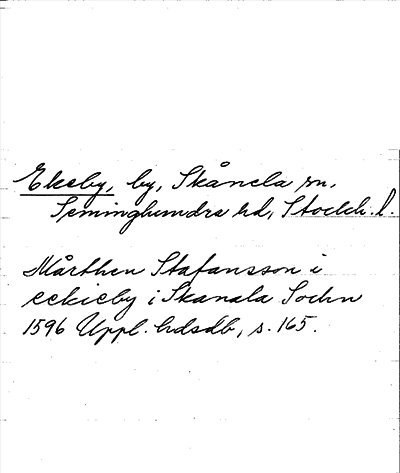 Ekeby, by, Skånela sn.
Seminghundra hd, Stockh. l.
Mårthen Stafansson i
eekieby i Skanala Sochn
1596 Uppl. hdsdb, s. 165.